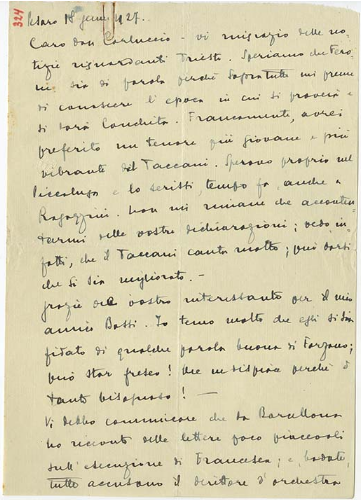 324
Pesaro 18 genn. 927.
Caro don Carluccio - vi ringrazio delle no-
tizie riguardanti Trieste. Speriamo che
sia di parola perchè sopratutto mi preme
di conoscere l'epoca in cui si proverà e
si darà Conchita. Francamente, avrei
preferito un tenore più giovane e più
vibrante del Taccani. Speravo proprio nel
Piccaluga e lo scrissi, tempo fa, anche a
Ragazzini. Non mi rimane che acconten-
tarmi delle vostre dichiarazioni; vedo in-
fatti, che il Taccani canta molto; può darsi
che si sia migliorato. -
Grazie del vostro interessamento per il mio
amico Bassi. Io temo molto che egli si sia
fidato di qualche parola buona di Forzano;
può star fresco! Me ne dispiace perchè è
tanto bisognoso! -
Vi debbo comunicare che da Barcellona
ho ricevuto delle lettere poco piacevoli
sull'esecuzione di Francesca; e, badate,
tutte accusano il direttore d'orchestra